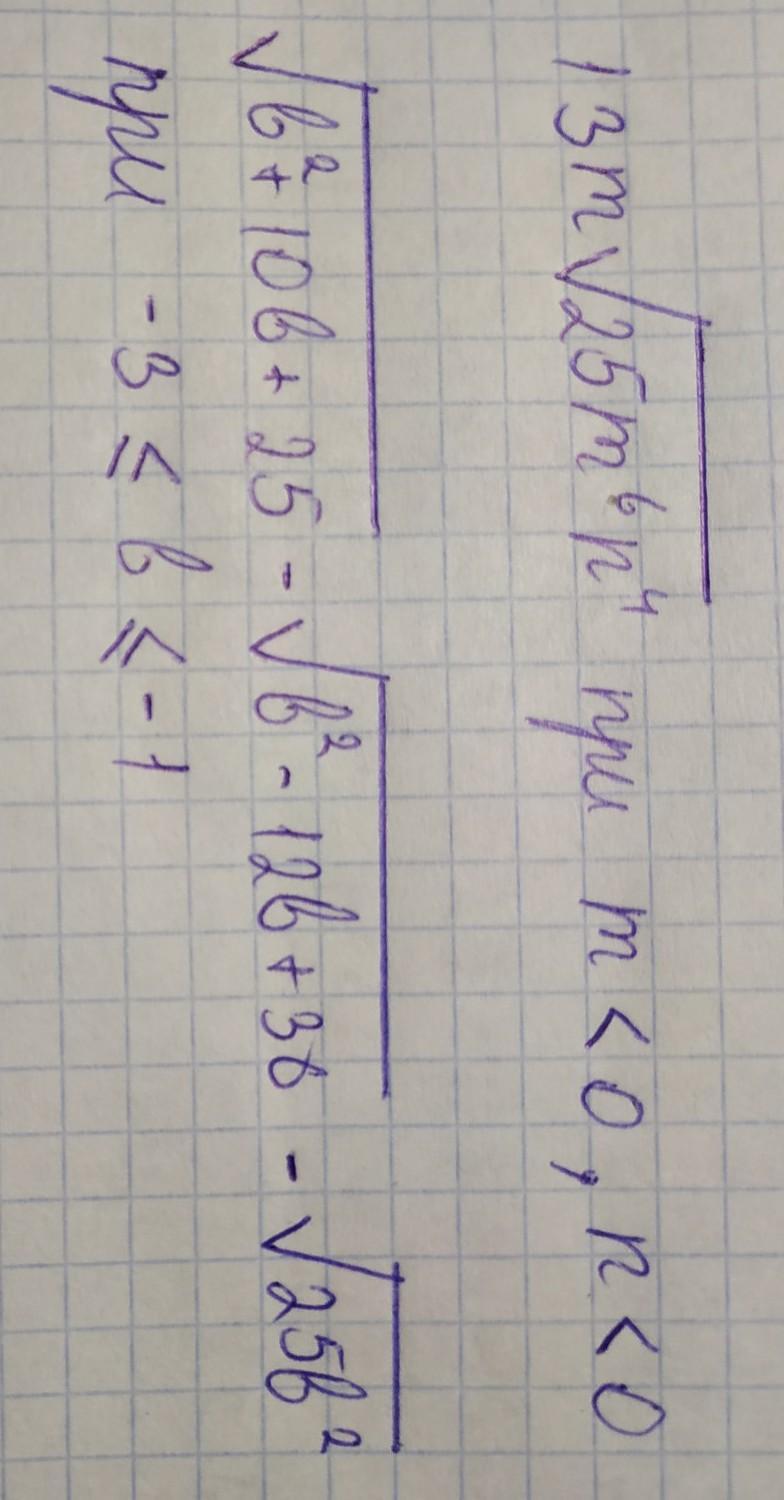 13m√25m⁶n⁴ при m < 0, n < 0
√b² + 10b + 25 - √b² - 12b + 36 - √25b²
при -3 ≤ b ≤ -1